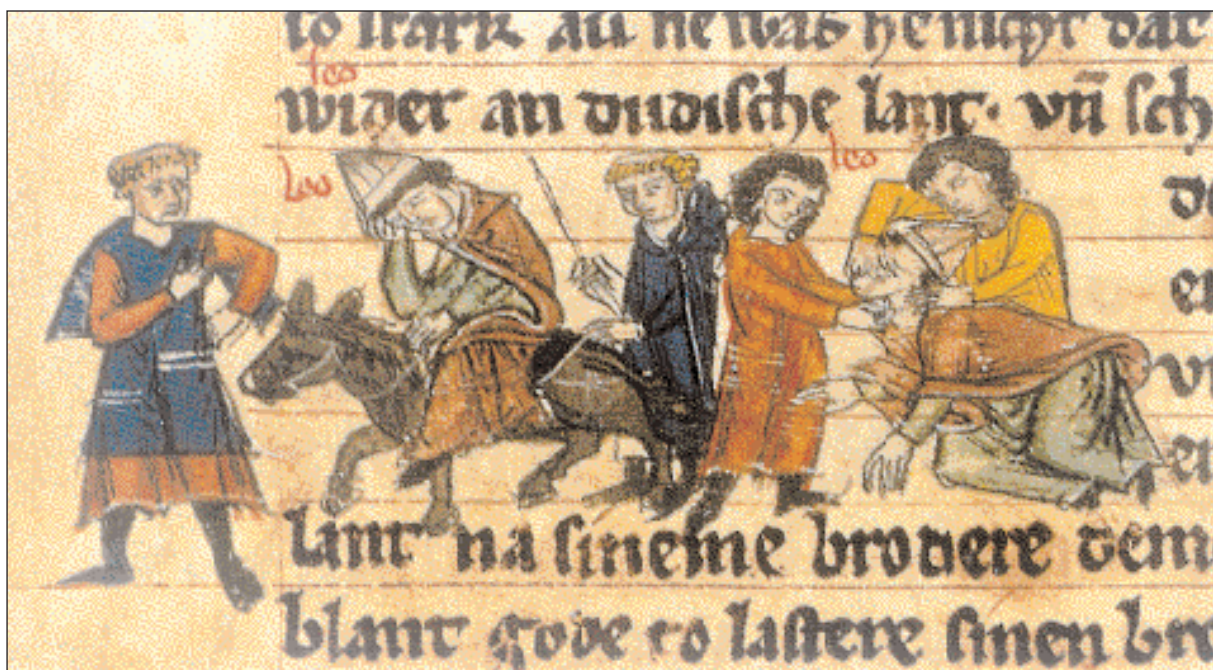 to stark an he was he nicht dat
leo
wider an dudische lant· vn̄ sch
leo
leo
de
er
vn
er
lant na sineme brodere dem
blant gode to lastere sinen bro